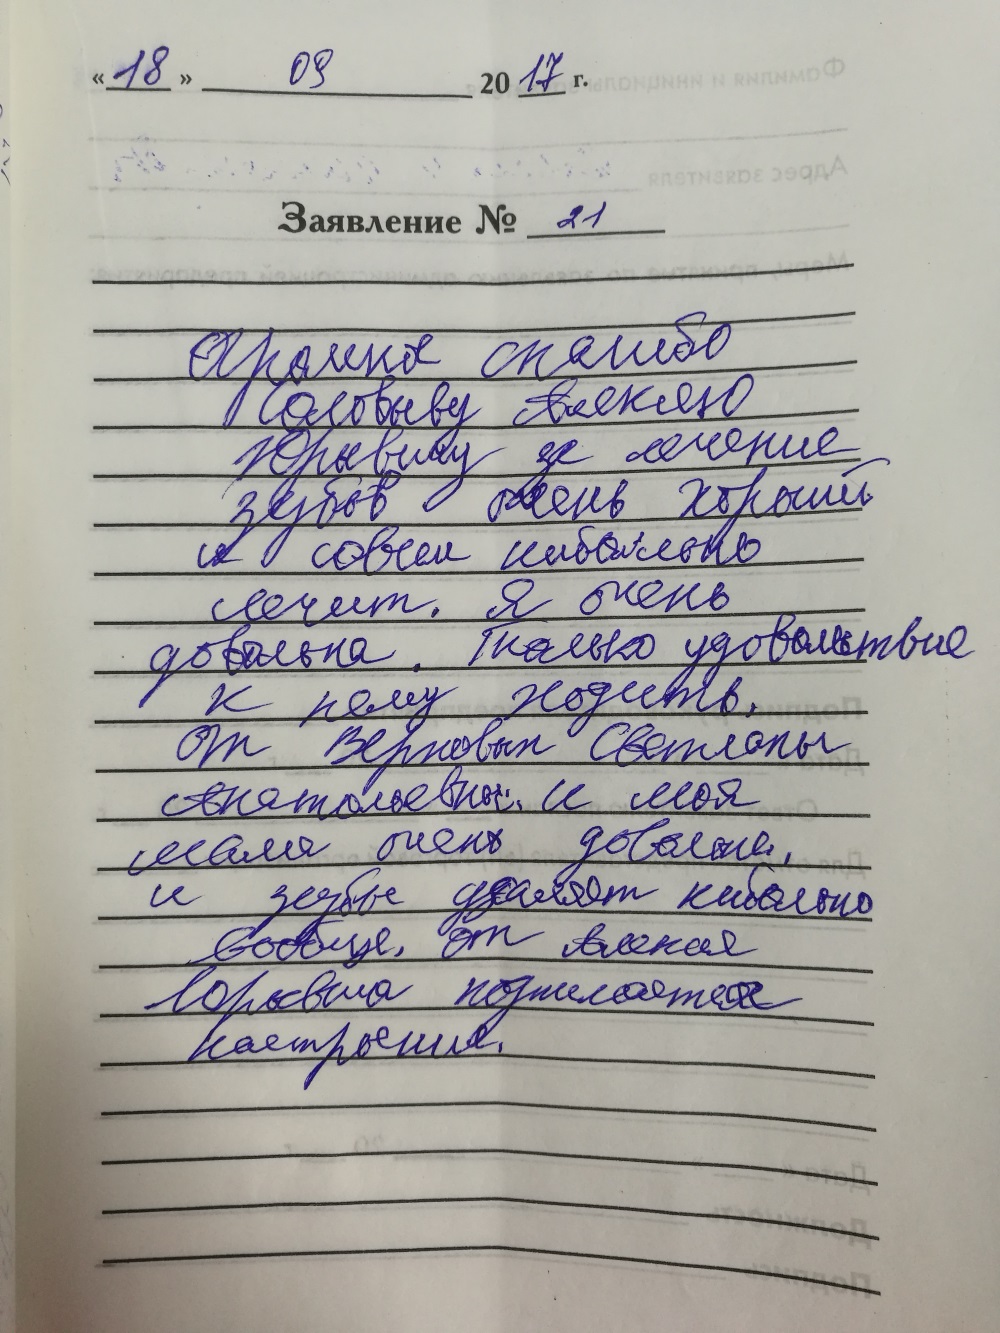 « 18 » 09 20 17 г.
Заявление № 21
Огромное спасибо
Соловьеву Алексею
Юрьевичу за лечение
зубов очень хороший
и совсем небольно
лечит. Я очень
довольна. Только удовольствие
к нему ходить.
От Светланы
Анатольевны. и моя
мама очень довольна.
и зубы удаляет небольно
вообще. От Алексея
Юрьевича поднимается
настроение.